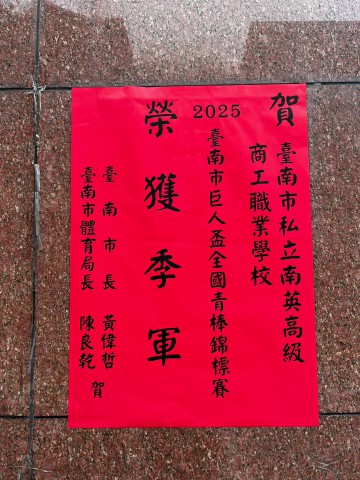 賀
臺南市私立南英高級
商工職業學校
2025
臺南市巨人盃全國青棒錦標賽
榮獲季軍
臺南市長 黃偉哲
臺南市體育局長 陳良乾
賀